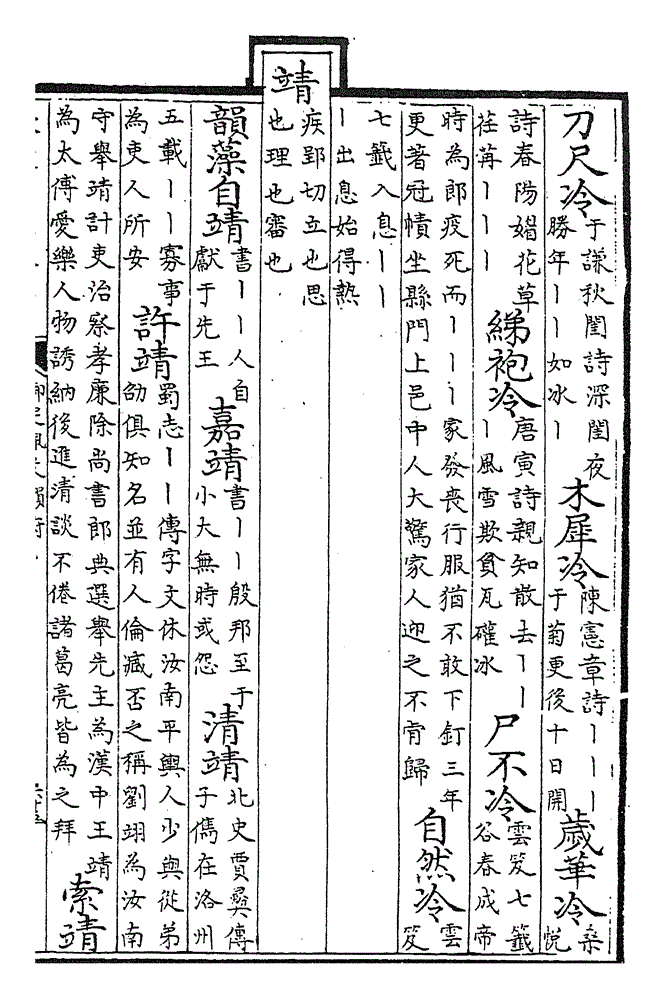 刀尺冷
于謙秋閨詩深閨夜
勝年丨丨如冰丨
木犀冷
陳憲章詩丨丨丨
于菊更後十日開
歲華冷
桑
悅
詩春陽媚花草
荏苒丨丨丨
綈袍冷
唐寅詩親知散去丨丨
丨風雪欺貧瓦確冰
尸不冷
雲笈七籤
谷春成帝
時為郎疫死而丨丨丨家發喪行服猶不敢下釘三年
更著冠幘坐縣門上邑中人大驚家人迎之不肯歸
自然冷
雲
笈
七籤入息丨丨
丨出息始得熱
靖
疾郢切立也思
也理也審也
韻藻自靖
書丨丨人自
獻于先王
嘉靖
書丨丨殷邦至于
小大無時或怨
清靖
北史賈彝傳
子儁在洛州
五載丨丨寡事
為吏人所安
許靖
蜀志丨丨傳字文休汝南平輿人少與從弟
劭俱知名並有人倫臧否之稱劉翊為汝南
守舉靖計吏治察孝廉除尚書郎典選舉先主為漢中王靖
為太傅愛樂人物誘納後進清談不倦諸葛亮皆為之拜
索靖